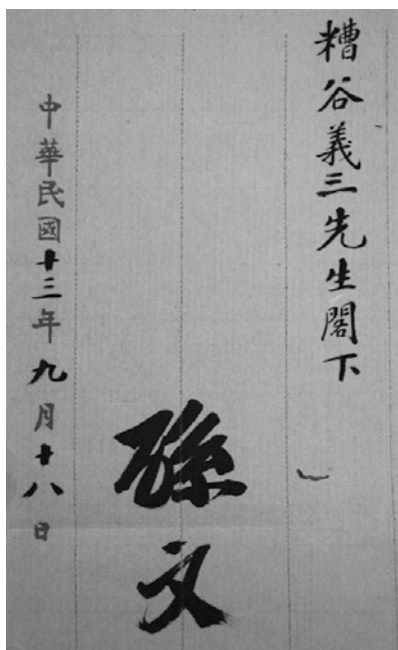 糟谷義三先生閣下
孫文
中華民國十三年九月十八日